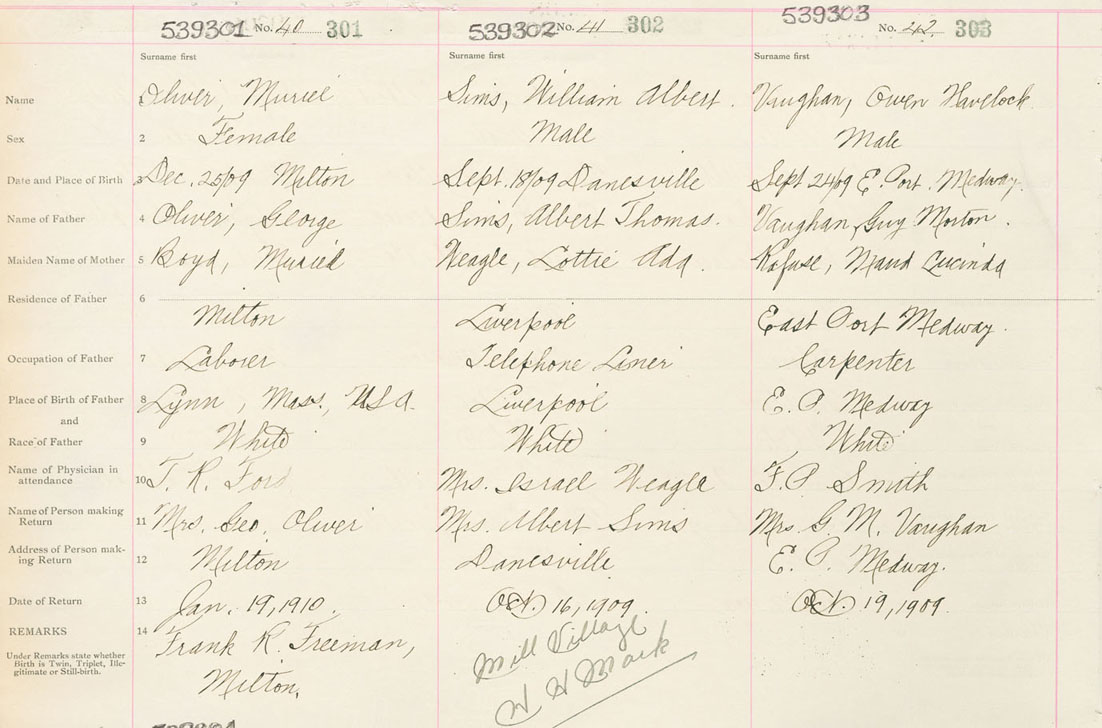 539301 No. 40 301 539302 No. 41 302 539303 No. 42. 303
Surname first Surname first Surname first
Name 1 Oliver, Muriel Sims, William Albert. Vaughan, Owen Havelock
Sex 2 Female Male Male
Date and Place of Birth 3 Dec. 25/09 Milton Sept. 18/09 Danesville Sept 24/09 E. Port. Medway.
Name of Father 4 Oliver, George Sims, Albert Thomas. Vaughan, Guy Morton.
Maiden Name of Mother 5 Boyd, Muriel Weagle, Lottie Ada. Rafuse, Maud Lucinda
Residence of Father 6
Milton Liverpool East Port Medway.
Occupation of Father 7 Laborer Telephone Liner Carpenter
Place of Birth of Father 8 Lynn, Mass, USA. Liverpool E. P. Medway
and
Race of Father 9 White White White
Name of Physician in
attendance 10 T. R. Ford Mrs. Israel Weagle F. P. Smith
Name of Person making
Return 11 Mrs. Geo. Oliver Mrs. Albert Sims Mrs G. M. Vaughan
Address of Person mak-
ing Return 12 Milton Danesville E. P. Medway.
Date of Return 13 Jan. 19, 1910. Oct. 16, 1909. Oct. 19, 1909.
REMARKS 14 Frank R. Freeman,
Under Remarks state whether
Birth is Twin, Triplet, Ille-
gitimate or Still-birth.
Milton.
Mill Village
H H Mack